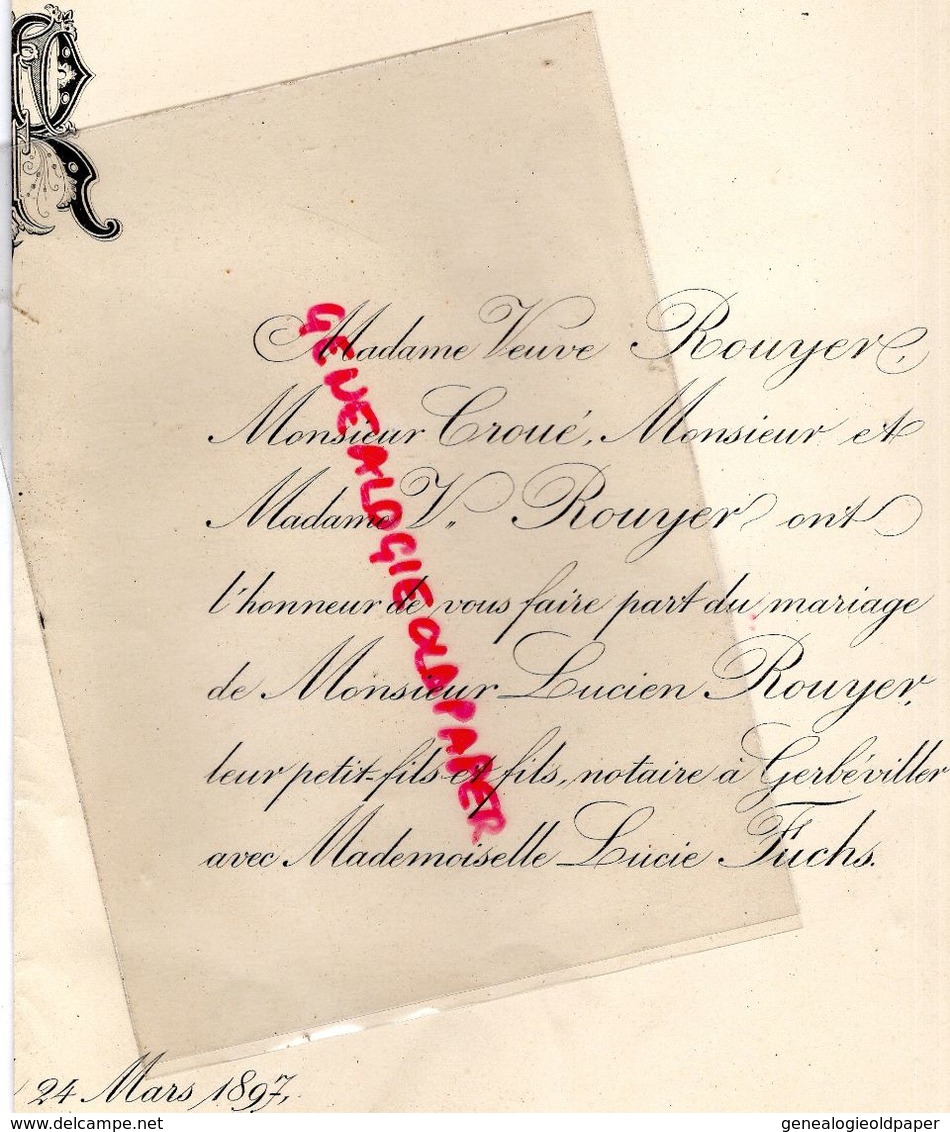 R
Madame Veuve Rouyer,
Monsieur Croué, Monsieur et
Madame V. Rouyer ont
l'honneur de vous faire part du mariage
de Monsieur Lucien Rouyer,
leur petit-fils et fils, notaire à Gerbéviller
avec Mademoiselle Lucie Fuchs.
24 Mars 1897.
GENEALOGIEOLDPAPER
www.delcampe.net
genealogieoldpaper